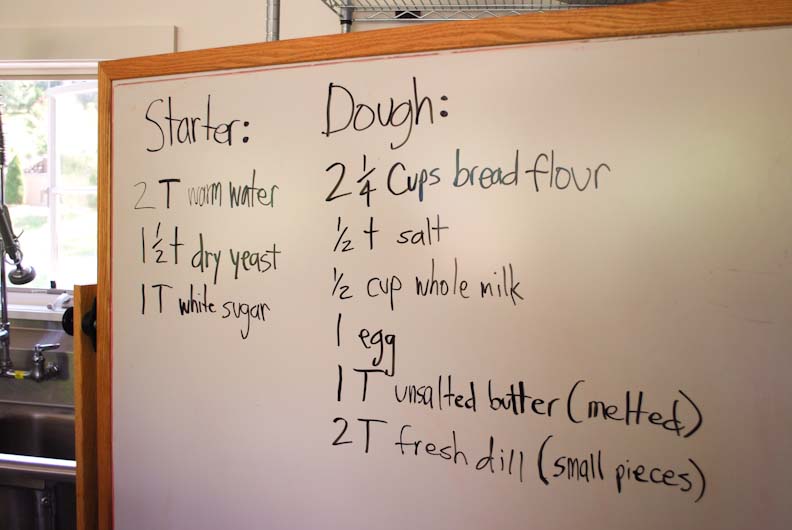 Starter:
2 T warm water
1 ½ t dry yeast
1 T white sugar
Dough:
2 ¼ Cups bread flour
½ t salt
½ cup whole milk
1 egg
1 T unsalted butter (melted)
2 T fresh dill (small pieces)